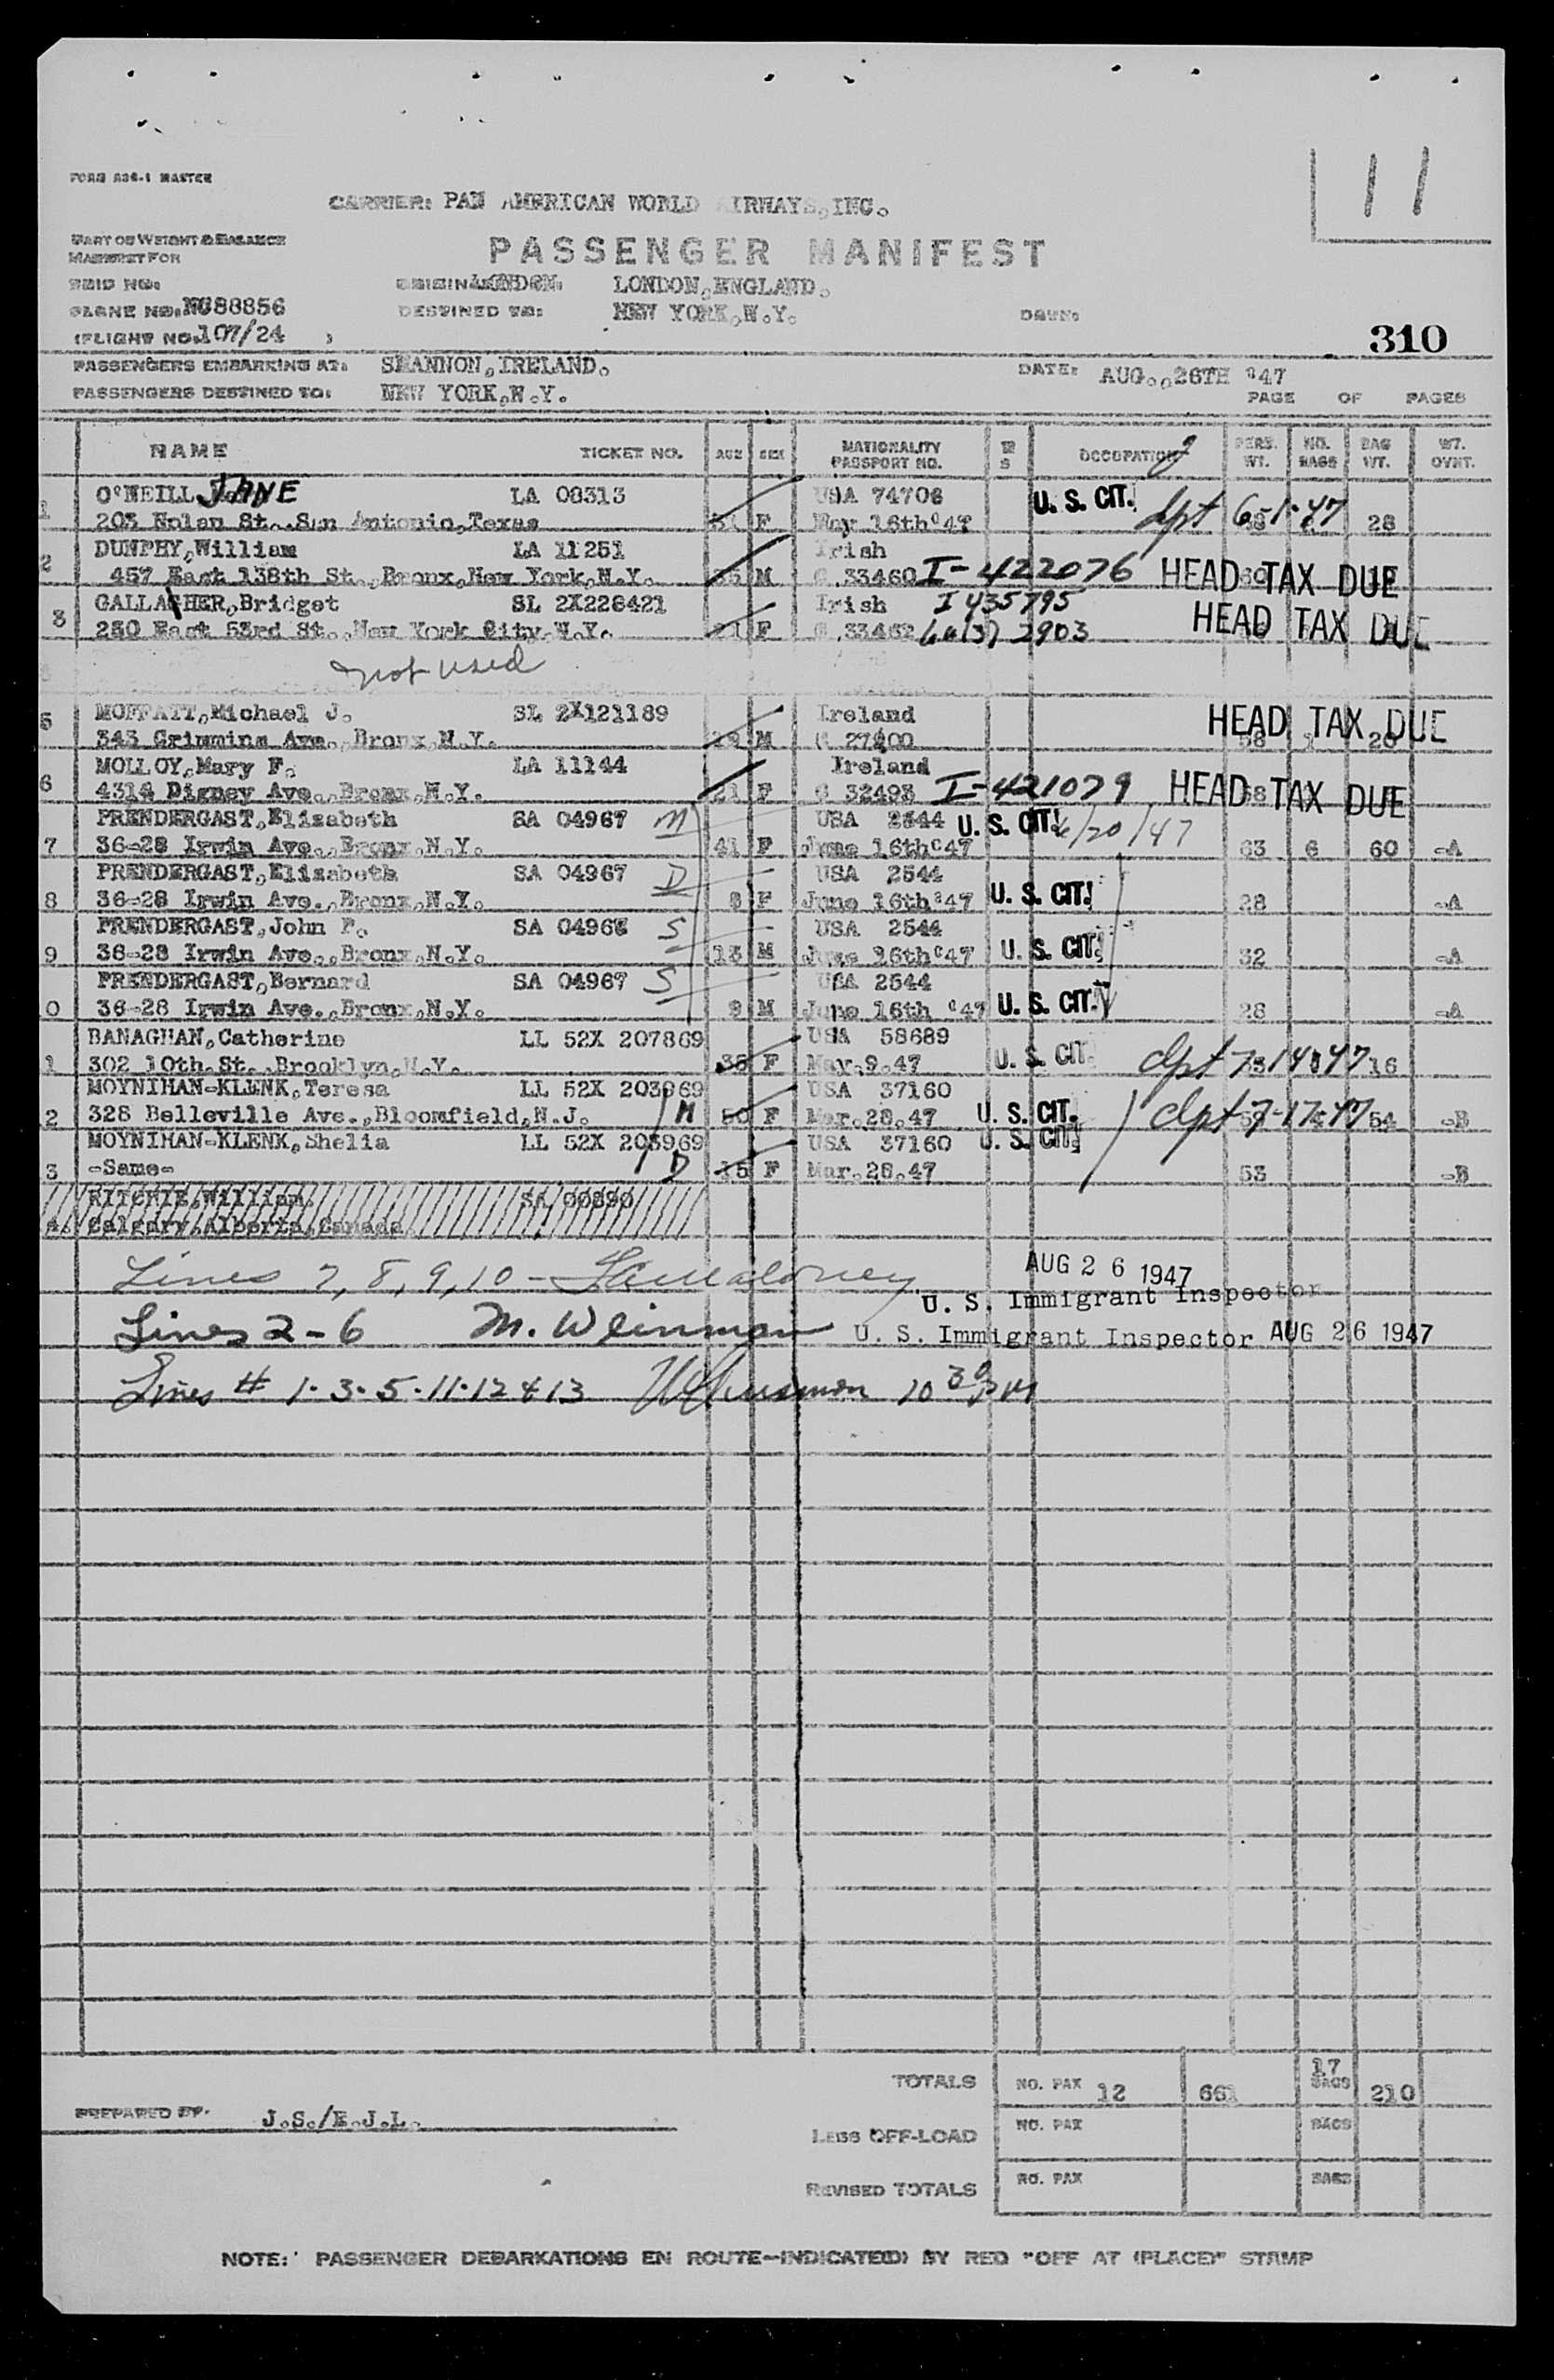 FORM A36-1 MASTER
11
CARRIER: PAN AMERICAN WORLD AIRWAYS, INC.
PART OF WEIGHT & BALANCE
MANIFEST FOR
PASSENGER MANIFEST
TRIP NO:
LONDON, ENGLAND.
PLANE NO: NC88856
DESTINED TO: NEW YORK, N.Y.
DATE:
(FLIGHT NO. 107/24 )
310
PASSENGERS EMBARKING AT: SHANNON, IRELAND.
DATE: AUG., 26TH '47
PASSENGERS DESTINED TO: NEW YORK, N.Y.
PAGE OF PAGES
NAME TICKET NO. AGE SEX NATIONALITY PASSPORT NO. OCCUPATION PERS. WT. NO. BAGS BAG WT. WT. OVWT.
O'NEILL JANE LA 08313 USA 74706 U. S. CIT.
1 203 Nolan St., San Antonio, Texas F May 16th '47 dpt 6-1-47 28
DUNPHY, William LA 11251 Irish
2 457 East 138th St., Bronx, New York, N.Y. M C 33460 I-422076 HEAD TAX DUE
GALLAGHER, Bridget SL 2X228421 Irish I 435795
3 250 East 53rd St., New York City, N.Y. F C 33462 2903 HEAD TAX DUE
not used
MOFFATT, Michael J. SL 2X121189 Ireland
5 343 Crimmins Ave., Bronx, N.Y. M HEAD TAX DUE
MOLLOY, Mary F. LA 11144 Ireland
6 4314 Digney Ave., Bronx, N.Y. 21 F C 32493 I-421079 HEAD TAX DUE
PRENDERGAST, Elizabeth SA 04967 M USA 2544 U. S. CIT. 6/20/47
7 36-28 Irwin Ave., Bronx, N.Y. 41 F June 16th '47 63 6 60 -A
PRENDERGAST, Elizabeth SA 04967 D USA 2544
8 36-28 Irwin Ave., Bronx, N.Y. 8 F June 16th '47 U. S. CIT. 28 -A
PRENDERGAST, John P. SA 04967 S USA 2544
9 36-28 Irwin Ave., Bronx, N.Y. 13 M June 16th '47 U. S. CIT. 32 -A
PRENDERGAST, Bernard SA 04967 S USA 2544
0 36-28 Irwin Ave., Bronx, N.Y. 9 M June 16th '47 U. S. CIT. 28 -A
BANAGHAN, Catherine LL 52X 207869 USA 58689
1 302 10th. St., Brooklyn, N.Y. 36 F May. 9. 47 U. S. CIT. dpt 7 14 47 16
MOYNIHAN-KLENK, Teresa LL 52X 203969 USA 37160
2 328 Belleville Ave., Bloomfield, N.J. M 50 F Mar. 28. 47 U. S. CIT. dpt 7-17-47 54 -B
MOYNIHAN-KLENK, Shelia LL 52X 203969 USA 37160 U. S. CIT.
3 -Same- D 15 F Mar. 28. 47 53 -B
RITCHIE, William. SA 00890
Calgary, Alberta, Canada
Lines 7, 8, 9, 10 - AUG 26 1947
U. S. Immigrant Inspector
Lines 2-6 M. Weinman U. S. Immigrant Inspector AUG 26 1947
Lines # 1. 3. 5. 11. 12 & 13 10 30 PM
TOTALS NO. PAX 12 661 17 BAGS 210
PREPARED BY. J.S./E.J.L.
LESS OFF-LOAD NO. PAX BAGS
REVISED TOTALS NO. PAX BAGS
NOTE: PASSENGER DEBARKATIONS EN ROUTE-INDICATE(D) BY RED "OFF AT (PLACE)" STAMP